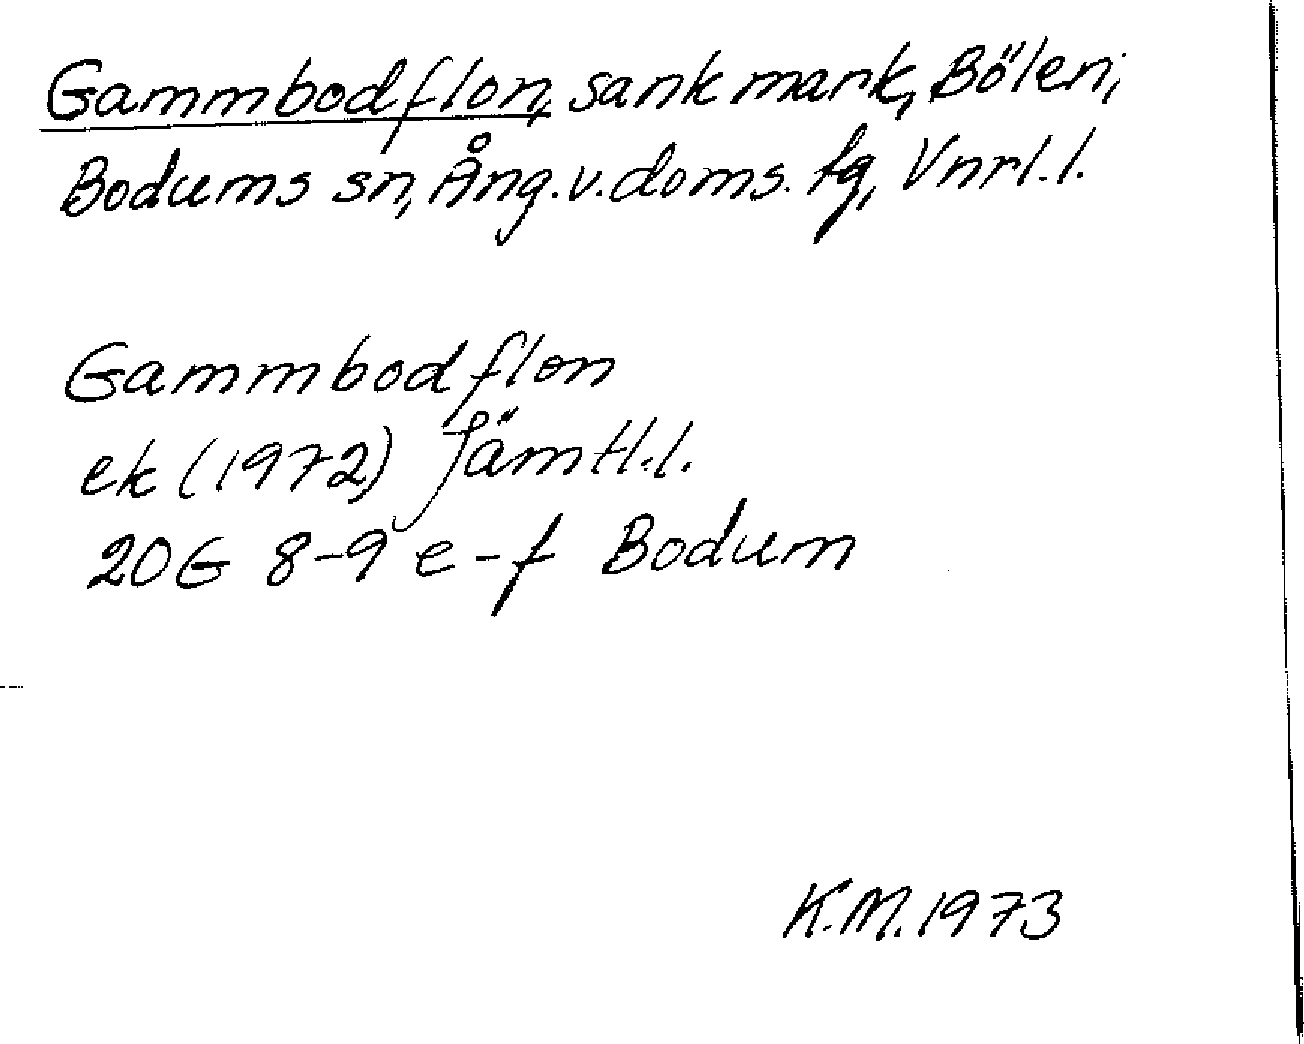 Gammbodflon, sank mark, Bölen,
Bodums sn, Ång.v.doms. fg, Vnrl.l.
Gammbodflon
ek (1972) Jämtl.l.
20G 8-9 e-f Bodum
K.M. 1973